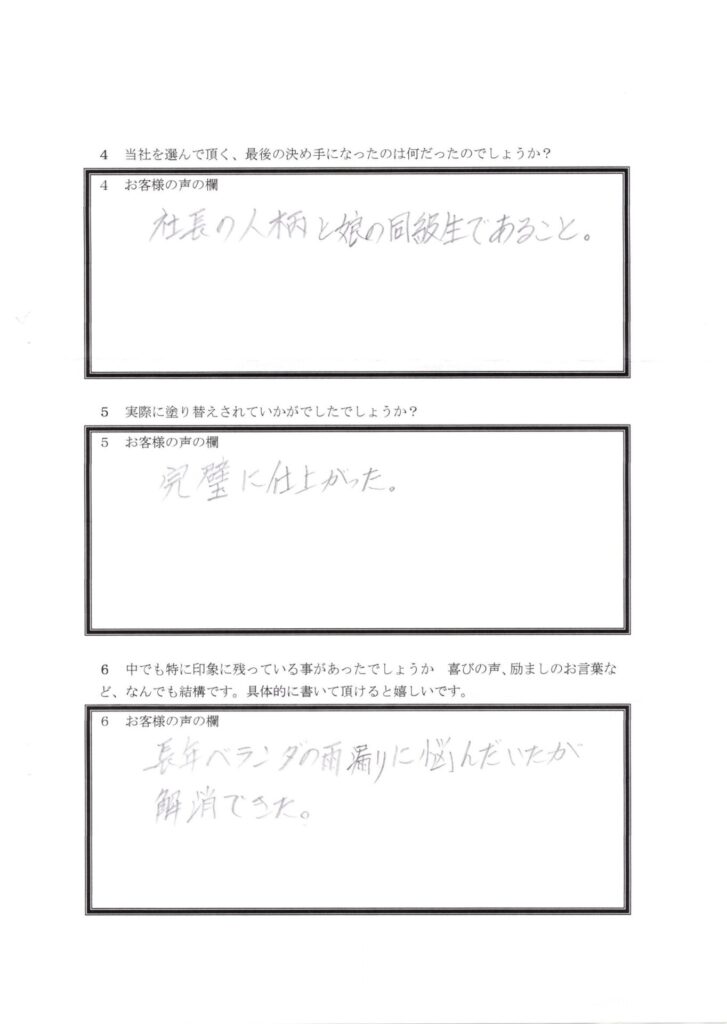 4 当社を選んで頂く、最後の決め手になったのは何だったのでしょうか？
4 お客様の声の欄
社長の人柄と娘の同級生であること。
5 実際に塗り替えされていかがでしたでしょうか？
5 お客様の声の欄
完璧に仕上がった。
6 中でも特に印象に残っている事があったでしょうか 喜びの声、励ましのお言葉な
ど、なんでも結構です。具体的に書いて頂けると嬉しいです。
6 お客様の声の欄
長年ベランダの雨漏りに悩んだいたが
解消できた。